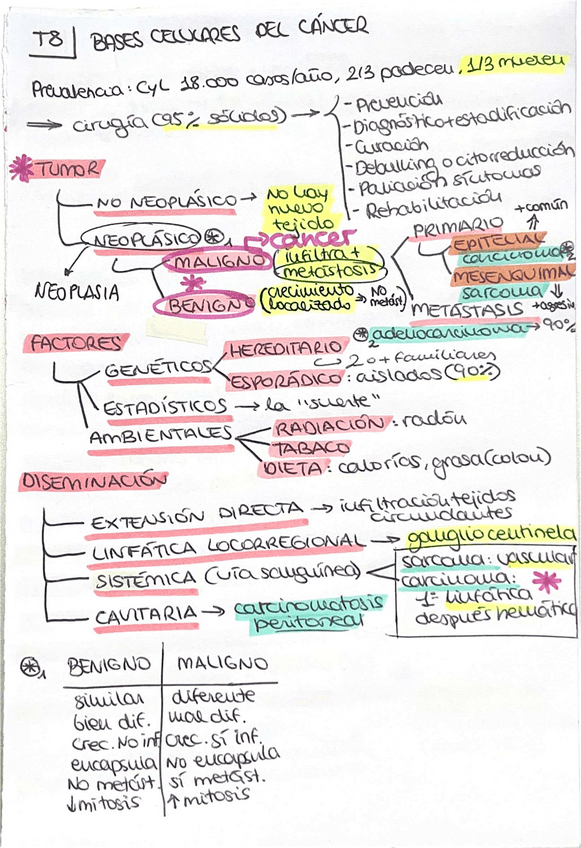 T8 BASES CELULARES DEL CÁNCER
Prevalencia: CyL 18.000 casos/año, 2/3 padecen, 1/3 mueren
⇒ cirugía (95% sólidos) →
- Prevención
- Diagnóstico + estadificación
- Curación
- Debulking o citorreducción
- Paliación síntomas
- Rehabilitación
* TUMOR
NO NEOPLÁSICO → No hay
nuevo
tejido
NEOPLÁSICO *1
NEOPLASIA
MALIGNO → cáncer
(infiltra +
metástasis)
*
BENIGNO (crecimiento
localizado → No
metást)
PRIMARIO
+común
EPITELIAL
carcinoma *2
MESENQUIMAL
sarcoma
+agresiv
METÁSTASIS
*2 adenocarcinoma → 90%
FACTORES
GENÉTICOS
HEREDITARIO
2 o + familiares
ESPORÁDICO: aislados (90%)
ESTADÍSTICOS → la "suerte"
AMBIENTALES
RADIACIÓN: radón
TABACO
DIETA: calorías, grasa (colon)
DISEMINACIÓN
EXTENSIÓN DIRECTA → infiltración tejidos
circundantes
LINFÁTICA LOCORREGIONAL → ganglio centinela
SISTÉMICA (vía sanguínea)
sarcoma: vascular
carcinoma: *
1º linfática
después hemática
CAVITARIA → carcinomatosis
peritoneal
*1 BENIGNO | MALIGNO
similar | diferente
bien dif. | mal dif.
Crec. No inf | Crec. Sí inf.
encapsula | No encapsula
No metást. | sí metást.
↓mitosis | ↑mitosis